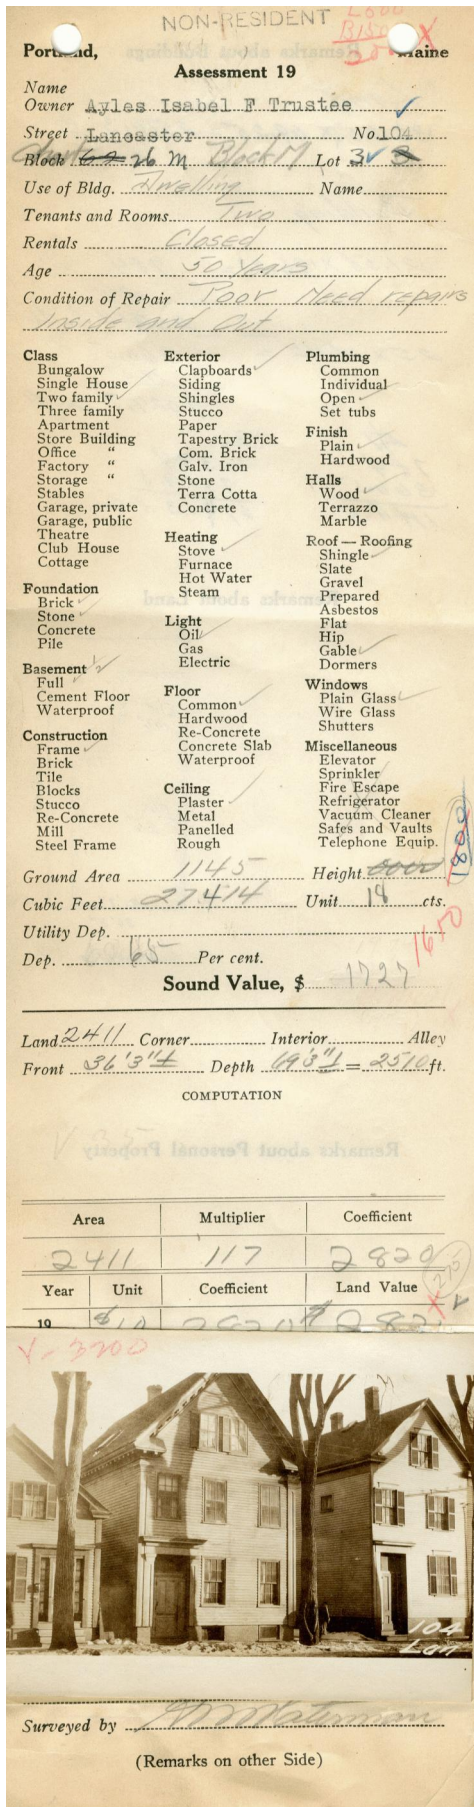 NON-RESIDENT
Portland, Maine
Assessment 19
Name
Owner Ayles Isabel F Trustee
Street Lancaster No 104
Block 26 M Block M Lot 3
Use of Bldg. Dwelling Name
Tenants and Rooms Two
Rentals Closed
Age 50 Years
Condition of Repair Poor Need repairs
Inside and Out
Class
Bungalow
Single House
Two family
Three family
Apartment
Store Building
Office "
Factory "
Storage "
Stables
Garage, private
Garage, public
Theatre
Club House
Cottage
Foundation
Brick
Stone
Concrete
Pile
Basement ½
Full
Cement Floor
Waterproof
Construction
Frame
Brick
Tile
Blocks
Stucco
Re-Concrete
Mill
Steel Frame
Exterior
Clapboards
Siding
Shingles
Stucco
Paper
Tapestry Brick
Com. Brick
Galv. Iron
Stone
Terra Cotta
Concrete
Heating
Stove
Furnace
Hot Water
Steam
Light
Oil
Gas
Electric
Floor
Common
Hardwood
Re-Concrete
Concrete Slab
Waterproof
Ceiling
Plaster
Metal
Panelled
Rough
Plumbing
Common
Individual
Open
Set tubs
Finish
Plain
Hardwood
Halls
Wood
Terrazzo
Marble
Roof — Roofing
Shingle
Slate
Gravel
Prepared
Asbestos
Flat
Hip
Gable
Dormers
Windows
Plain Glass
Wire Glass
Shutters
Miscellaneous
Elevator
Sprinkler
Fire Escape
Refrigerator
Vacuum Cleaner
Safes and Vaults
Telephone Equip.
Ground Area 1145 Height
Cubic Feet 27414 Unit 18 cts.
Utility Dep. 1650
Dep. 65 Per cent.
Sound Value, $ 1727
Land 2411 Corner Interior Alley
Front 36'3"± Depth 69'3"± = 2510 ft.
COMPUTATION
Remarks about Personal Property
Area Multiplier Coefficient
2411 117 2820
Year Unit Coefficient Land Value
19 $10 2820 $ 282
V-3200
104
Lan
Surveyed by Waterman
(Remarks on other Side)